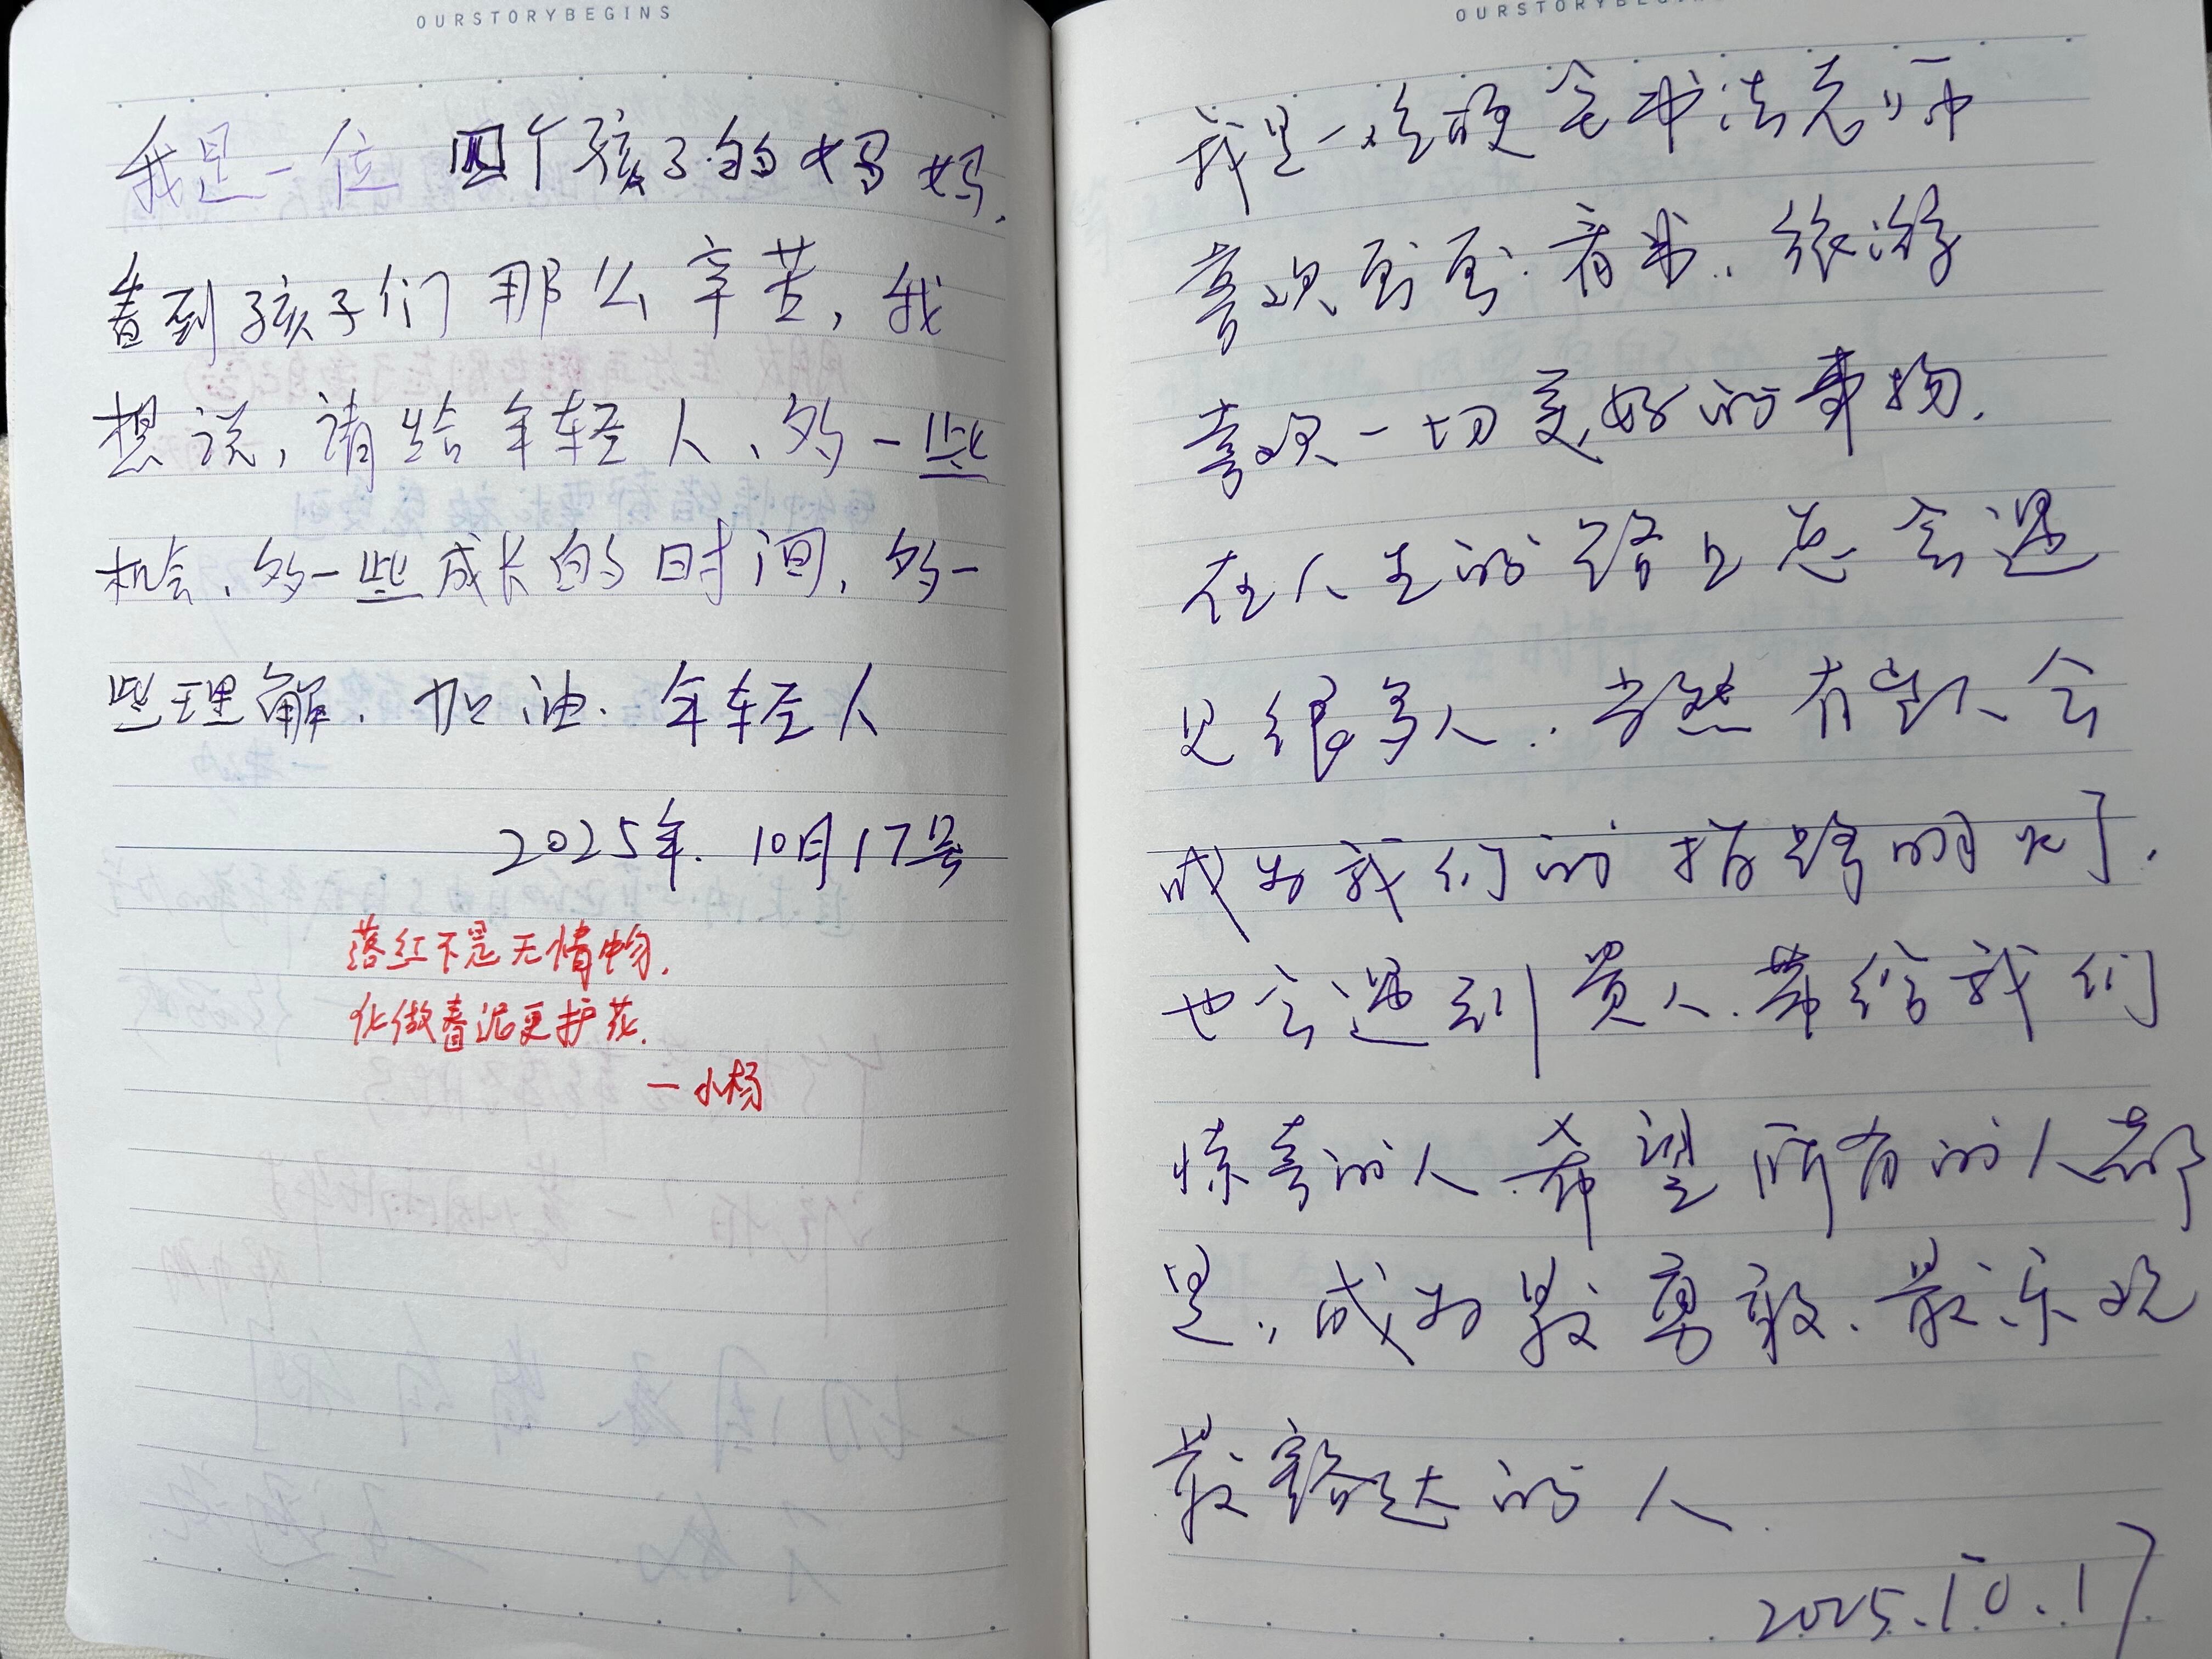 OURSTORYBEGINS
我是一位 四个孩子的妈妈.
看到孩子们那么辛苦,我
想说,请给年轻人、多一些
机会、多一些成长的时间,多一
些理解. 加油. 年轻人
2025年. 10月17号
落红不是无情物.
化做春泥更护花.
一小杨
OURSTORYBEGINS
我是一名硬笔书法老师
喜欢画画.看书.旅游
喜欢一切美好的事物.
在人生的路上总会遇
见很多人..当然有些人会
成为我们的指路明灯.
也会遇到贵人.带给我们
惊喜的人.希望所有的人都
是..成为最勇敢.最乐观
最豁达的人.
2025.10.17